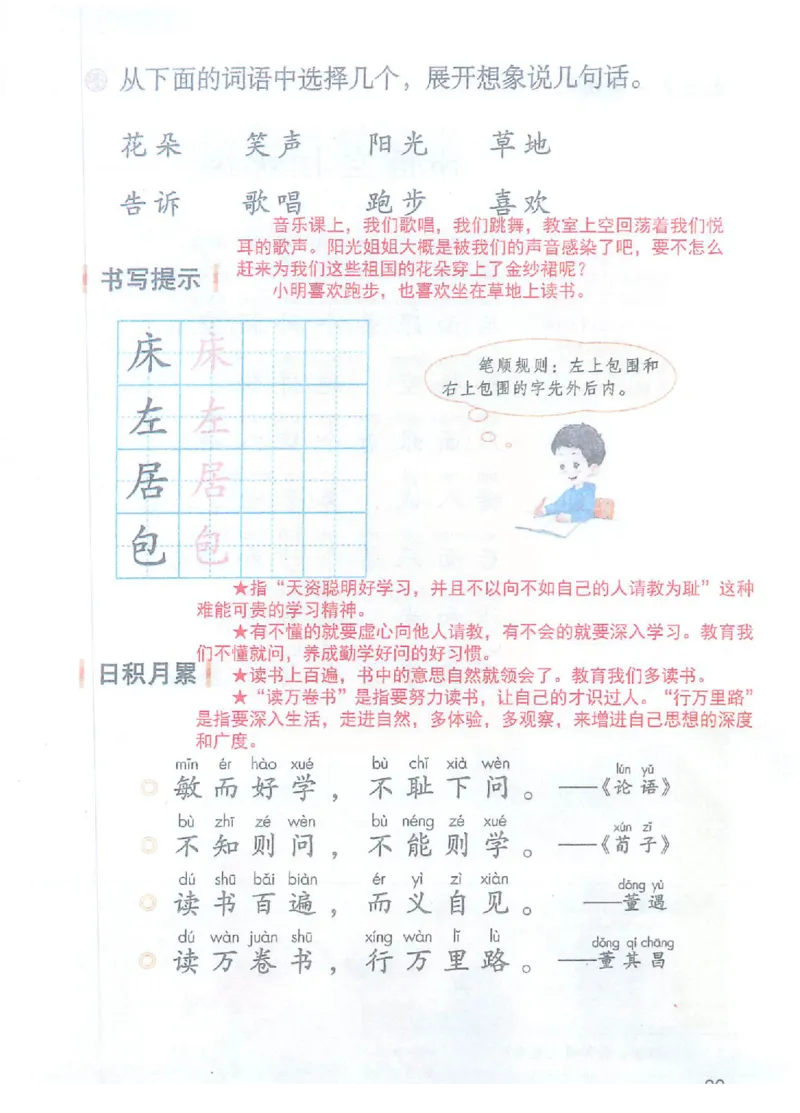 从下面的词语中选择几个，展开想象说几句话。
花朵 笑声 阳光 草地
告诉 歌唱 跑步 喜欢
音乐课上，我们歌唱，我们跳舞，教室上空回荡着我们悦
耳的歌声。阳光姐姐大概是被我们的声音感染了吧，要不怎么
赶来为我们这些祖国的花朵穿上了金纱裙呢？
小明喜欢跑步，也喜欢坐在草地上读书。
书写提示
床 床
左 左
居 居
包 包
笔顺规则：左上包围和
右上包围的字先外后内。
★指“天资聪明好学习，并且不以向不如自己的人请教为耻”这种
难能可贵的学习精神。
★有不懂的就要虚心向他人请教，有不会的就要深入学习。教育我
们不懂就问，养成勤学好问的好习惯。
日积月累
★读书上百遍，书中的意思自然就领会了。教育我们多读书。
★“读万卷书”是指要努力读书，让自己的才识过人。“行万里路”
是指要深入生活，走进自然，多体验，多观察，来增进自己思想的深度
和广度。
mǐn ér hào xué bù chǐ xià wèn lún yǔ
敏而好学，不耻下问。——《论语》
bù zhī zé wèn bù néng zé xué xún zǐ
不知则问，不能则学。——《荀子》
dú shū bǎi biàn ér yì zì xiàn dǒng yù
读书百遍，而义自见。——董遇
dú wàn juàn shū xíng wàn lǐ lù dǒng qí chāng
读万卷书，行万里路。——董其昌